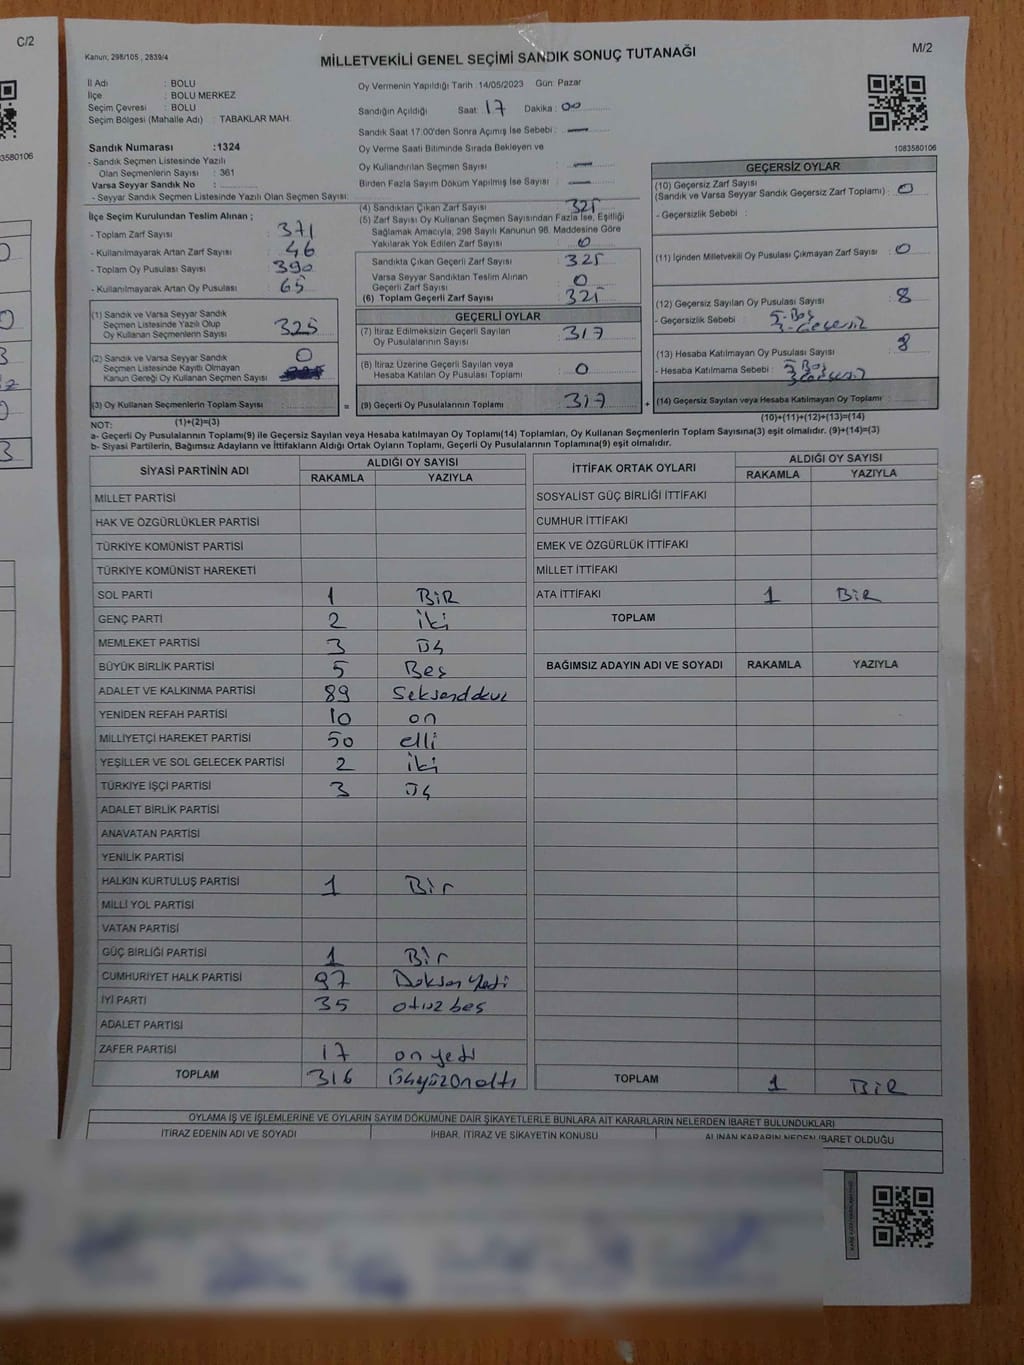 C/2
Kanun: 298/105 , 2839/4
MİLLETVEKİLİ GENEL SEÇİMİ SANDIK SONUÇ TUTANAĞI
M/2
İl Adı : BOLU
İlçe : BOLU MERKEZ
Seçim Çevresi : BOLU
Seçim Bölgesi (Mahalle Adı) : TABAKLAR MAH.
Sandık Numarası :1324
- Sandık Seçmen Listesinde Yazılı
Olan Seçmenlerin Sayısı : 361
Varsa Seyyar Sandık No :
- Seyyar Sandık Seçmen Listesinde Yazılı Olan Seçmen Sayısı:
Oy Vermenin Yapıldığı Tarih : 14/05/2023 Gün: Pazar
Sandığın Açıldığı Saat : 17 Dakika : 00
Sandık Saat 17.00'den Sonra Açımış İse Sebebi : —
Oy Verme Saati Bitiminde Sırada Bekleyen ve
Oy Kullandırılan Seçmen Sayısı : —
Birden Fazla Sayım Döküm Yapılmış İse Sayısı : —
3580106
1083580106
İlçe Seçim Kurulundan Teslim Alınan ;
- Toplam Zarf Sayısı : 371
- Kullanılmayarak Artan Zarf Sayısı : 46
- Toplam Oy Pusulası Sayısı : 390
- Kullanılmayarak Artan Oy Pusulası : 65
(1) Sandık ve Varsa Seyyar Sandık
Seçmen Listesinde Yazılı Olup
Oy Kullanan Seçmenlerin Sayısı 325
(2) Sandık ve Varsa Seyyar Sandık
Seçmen Listesinde Kayıtlı Olmayan
Kanun Gereği Oy Kullanan Seçmen Sayısı 0
(3) Oy Kullanan Seçmenlerin Toplam Sayısı
(1)+(2)=(3)
(4) Sandıktan Çıkan Zarf Sayısı 325
(5) Zarf Sayısı Oy Kullanan Seçmen Sayısından Fazla İse, Eşitliği
Sağlamak Amacıyla, 298 Sayılı Kanunun 98. Maddesine Göre
Yakılarak Yok Edilen Zarf Sayısı : 0
Sandıkta Çıkan Geçerli Zarf Sayısı : 325
Varsa Seyyar Sandıktan Teslim Alınan
Geçerli Zarf Sayısı : 0
(6) Toplam Geçerli Zarf Sayısı : 325
GEÇERLİ OYLAR
(7) İtiraz Edilmeksizin Geçerli Sayılan
Oy Pusulalarının Sayısı : 317
(8) İtiraz Üzerine Geçerli Sayılan veya
Hesaba Katılan Oy Pusulası Toplamı : 0
= (9) Geçerli Oy Pusulalarının Toplamı 317 +
GEÇERSİZ OYLAR
(10) Geçersiz Zarf Sayısı
(Sandık ve Varsa Seyyar Sandık Geçersiz Zarf Toplamı) : 0
- Geçersizlik Sebebi :
(11) İçinden Milletvekili Oy Pusulası Çıkmayan Zarf Sayısı : 0
(12) Geçersiz Sayılan Oy Pusulası Sayısı : 8
- Geçersizlik Sebebi : 5-Boş
3-Geçersiz
(13) Hesaba Katılmayan Oy Pusulası Sayısı : 8
- Hesaba Katılmama Sebebi : Boş
3 Geçersiz
(14) Geçersiz Sayılan veya Hesaba Katılmayan Oy Toplamı :
(10)+(11)+(12)+(13)=(14)
NOT:
a- Geçerli Oy Pusulalarının Toplamı(9) ile Geçersiz Sayılan veya Hesaba katılmayan Oy Toplamı(14) Toplamları, Oy Kullanan Seçmenlerin Toplam Sayısına(3) eşit olmalıdır. (9)+(14)=(3)
b- Siyasi Partilerin, Bağımsız Adayların ve İttifakların Aldığı Ortak Oyların Toplamı, Geçerli Oy Pusulalarının Toplamına(9) eşit olmalıdır.
SİYASİ PARTİNİN ADI
ALDIĞI OY SAYISI
RAKAMLA YAZIYLA
MİLLET PARTİSİ
HAK VE ÖZGÜRLÜKLER PARTİSİ
TÜRKİYE KOMÜNİST PARTİSİ
TÜRKİYE KOMÜNİST HAREKETİ
SOL PARTİ 1 BİR
GENÇ PARTİ 2 iki
MEMLEKET PARTİSİ 3 Üç
BÜYÜK BİRLİK PARTİSİ 5 Beş
ADALET VE KALKINMA PARTİSİ 89 Seksendokuz
YENİDEN REFAH PARTİSİ 10 on
MİLLİYETÇİ HAREKET PARTİSİ 50 elli
YEŞİLLER VE SOL GELECEK PARTİSİ 2 iki
TÜRKİYE İŞÇİ PARTİSİ 3 Üç
ADALET BİRLİK PARTİSİ
ANAVATAN PARTİSİ
YENİLİK PARTİSİ
HALKIN KURTULUŞ PARTİSİ 1 Bir
MİLLİ YOL PARTİSİ
VATAN PARTİSİ
GÜÇ BİRLİĞİ PARTİSİ 1 Bir
CUMHURİYET HALK PARTİSİ 97 Doksan yedi
İYİ PARTİ 35 otuz beş
ADALET PARTİSİ
ZAFER PARTİSİ 17 on yedi
TOPLAM 316 Üçyüzonaltı
İTTİFAK ORTAK OYLARI
ALDIĞI OY SAYISI
RAKAMLA YAZIYLA
SOSYALİST GÜÇ BİRLİĞİ İTTİFAKI
CUMHUR İTTİFAKI
EMEK VE ÖZGÜRLÜK İTTİFAKI
MİLLET İTTİFAKI
ATA İTTİFAKI 1 BİR
TOPLAM
BAĞIMSIZ ADAYIN ADI VE SOYADI RAKAMLA YAZIYLA
TOPLAM 1 BİR
OYLAMA İŞ VE İŞLEMLERİNE VE OYLARIN SAYIM DÖKÜMÜNE DAİR ŞİKAYETLERLE BUNLARA AİT KARARLARIN NELERDEN İBARET BULUNDUKLARI
İTİRAZ EDENİN ADI VE SOYADI
İHBAR, İTİRAZ VE ŞİKAYETİN KONUSU
ALINAN KARARIN NEDEN İBARET OLDUĞU